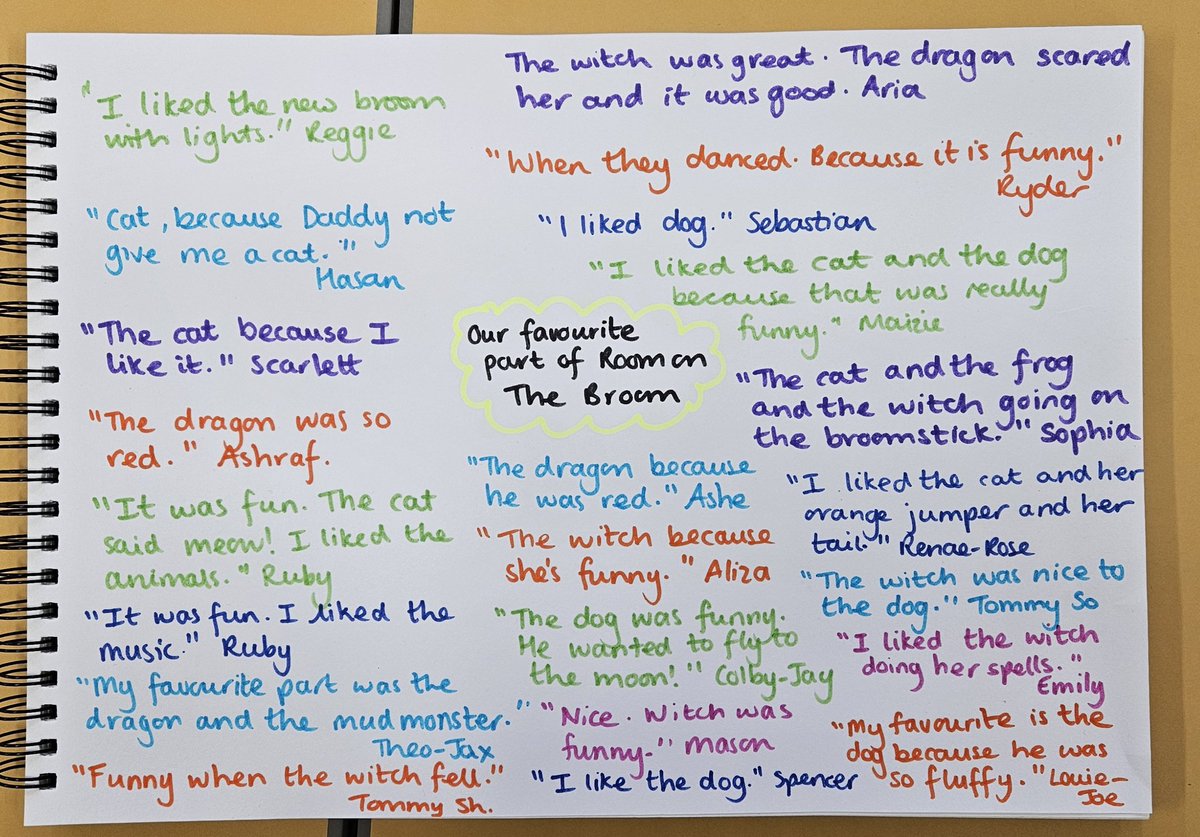 "I liked the new broom
with lights." Reggie
"Cat, because Daddy not
give me a cat."
Hasan
"The cat because I
like it." Scarlett
"The dragon was so
red." Ashraf.
"It was fun. The cat
said meow! I liked the
animals." Ruby
"It was fun. I liked the
music." Ruby
"My favourite part was the
dragon and the mud monster."
Theo-Jax
"Funny when the witch fell."
Tommy Sh.
The witch was great. The dragon scared
her and it was good. Aria
"When they danced. Because it is funny."
Ryder
"I liked dog." Sebastian
"I liked the cat and the dog
because that was really
funny." Maizie
Our favourite
part of Room on
The Broom
"The cat and the frog
and the witch going on
the broomstick." Sophia
"The dragon because
he was red." Ashe
"The witch because
she's funny." Aliza
"The dog was funny.
He wanted to fly to
the moon!" Colby-Jay
"Nice. Witch was
funny." Mason
"I like the dog." Spencer
"I liked the cat and her
orange jumper and her
tail." Renae-Rose
"The witch was nice to
the dog." Tommy So
"I liked the witch
doing her spells."
Emily
"My favourite is the
dog because he was
so fluffy." Louie-
Joe